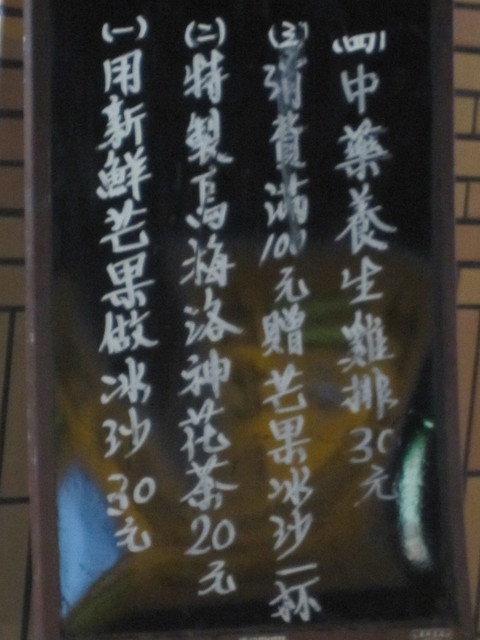 (一)用新鮮芒果做冰沙30元
(二)特製烏梅洛神花茶20元
(三)消費滿100元贈芒果冰沙一杯
(四)中藥養生雞排30元